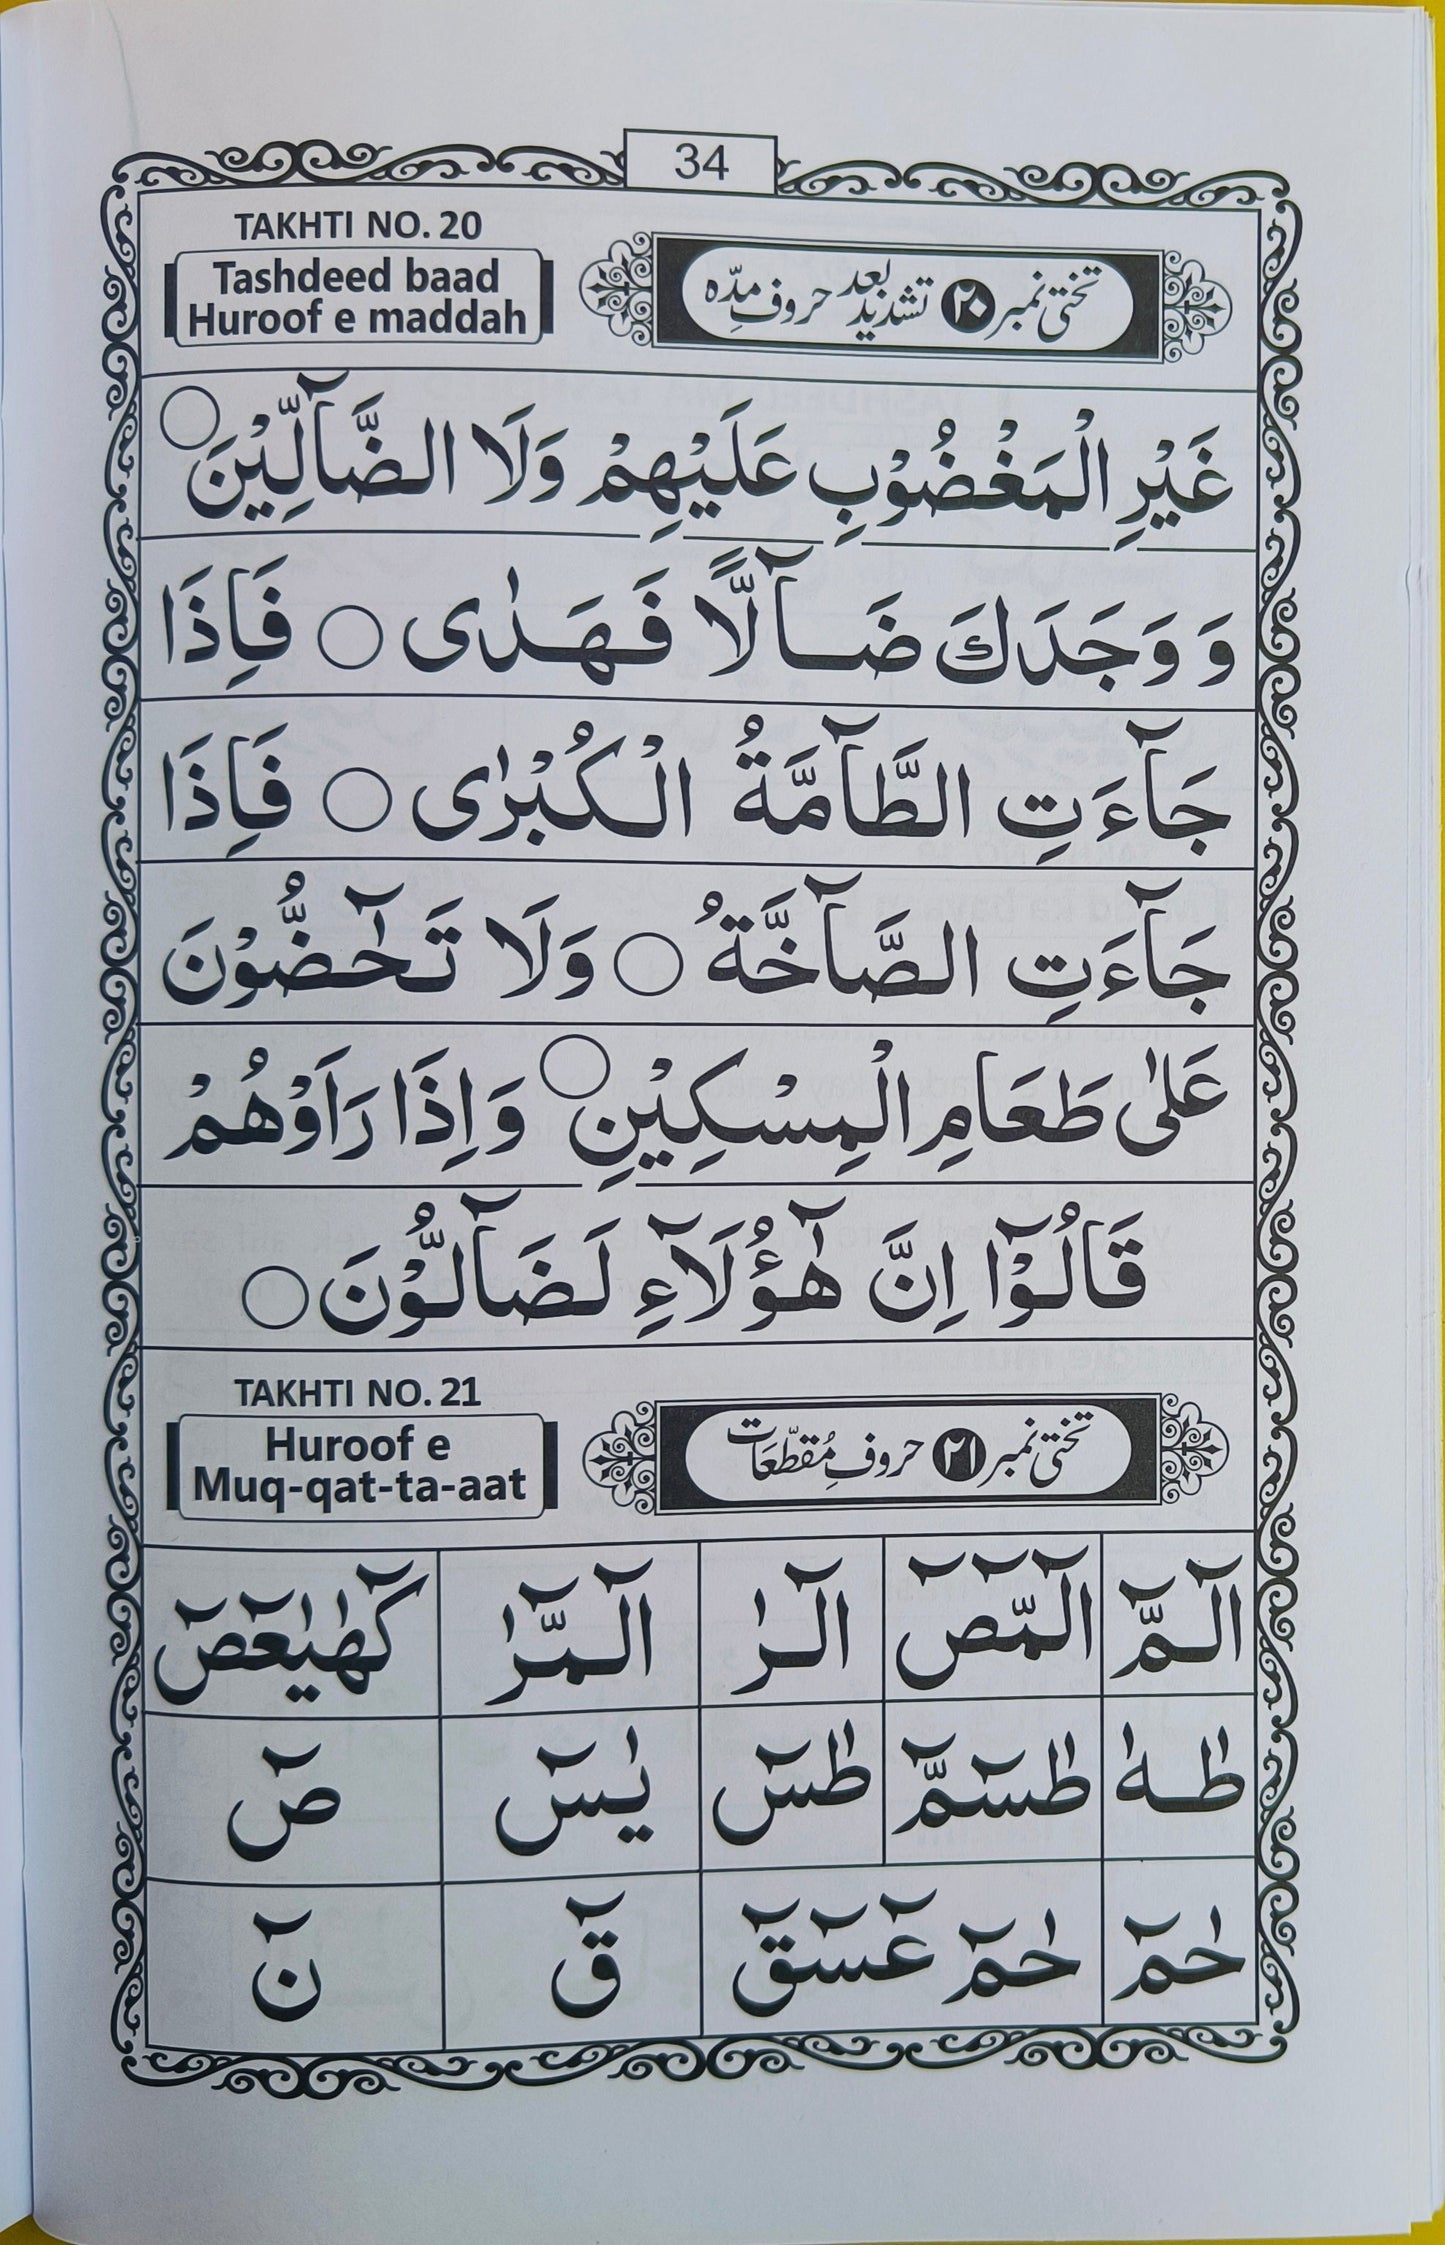 34
TAKHTI NO. 20
Tashdeed baad
Huroof e maddah
تختی نمبر ۲۰ تشدید بعد حروفِ مدّہ
غَيْرِ الْمَغْضُوْبِ عَلَيْهِمْ وَلَا الضَّآلِّيْنَ ○
وَ وَجَدَكَ ضَآلًّا فَهَدٰى ○ فَاِذَا
جَآءَتِ الطَّآمَّةُ الْكُبْرٰى ○ فَاِذَا
جَآءَتِ الصَّآخَّةُ ○ وَلَا تَحٰٓضُّوْنَ
عَلٰى طَعَامِ الْمِسْكِيْنِ ○ وَاِذَا رَاَوْهُمْ
قَالُوْٓا اِنَّ هٰٓؤُلَآءِ لَضَآلُّوْنَ ○
TAKHTI NO. 21
Huroof e
Muq-qat-ta-aat
تختی نمبر ۲۱ حروفِ مُقطّعَات
الٓمّٓ الٓمّٓصٓ الٓرٰ الٓمّٓرٰ كٓهٰيٰعٓصٓ
طٰهٰ طٰسٓمّٓ طٰسٓ يٰسٓ صٓ
حٰمٓ حٰمٓ عٓسٓقٓ قٓ نٓ